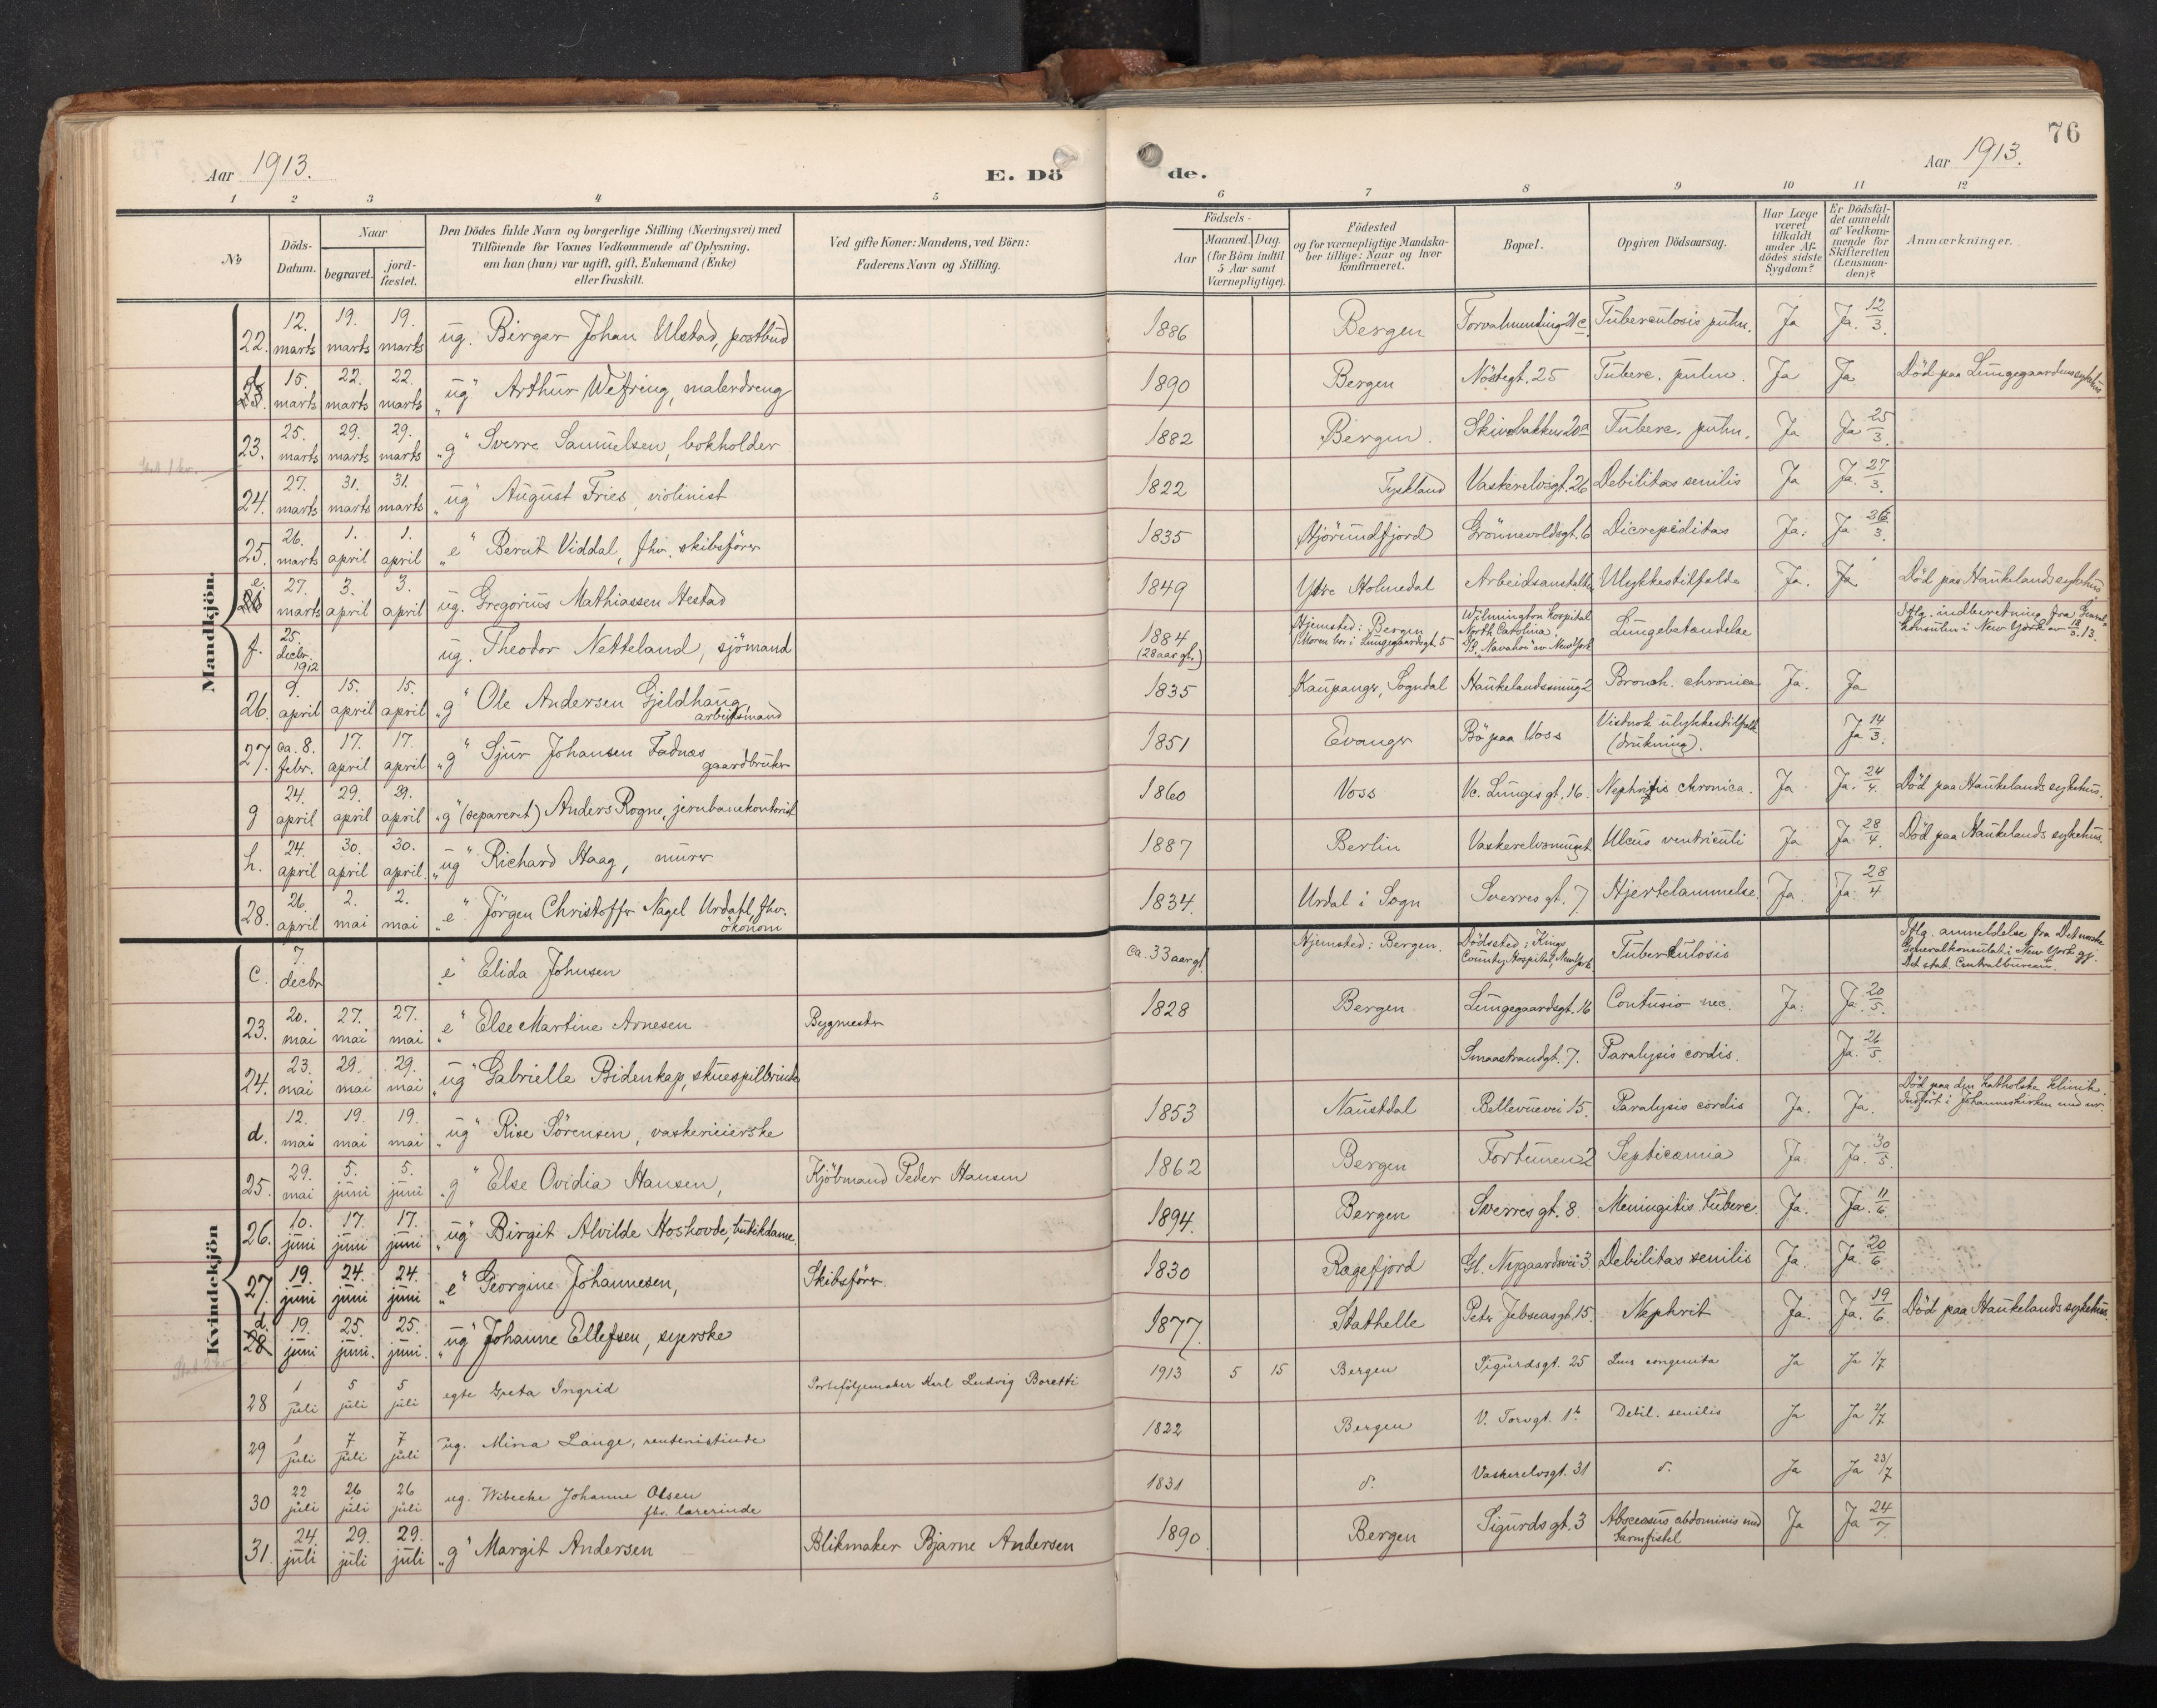 76
Aar 1913.
E. Dö
de.
Aar 1913.
1 2 3 4 5 6 7 8 9 10 11 12
No
Döds-Datum.
Naar
begravet.
jord-fæstet.
Den Dödes fulde Navn og borgerlige Stilling (Næringsvei) med
Tilföiende for Voxnes Vedkommende af Oplysning,
om han (hun) var ugift, gift, Enkemand (Enke)
eller fraskilt.
Ved gifte Koner: Mandens, ved Börn:
Faderens Navn og Stilling.
Födsels-
Aar
Maaned. Dag
(for Börn indtil
5 Aar samt
Værnepligtige).
Födested
og for værnepligtige Mandska-
ber tillige: Naar og hvor
konfirmeret.
Bopæl.
Opgiven Dödsaarsag.
Har Læge
været
tilkaldt
under Af-
dödes sidste
Sygdom?
Er Dödsfal-
det anmeldt
af Vedkom-
mende for
Skifteretten
(Lensman-
den)?
Anmærkninger.
Mandkjön.
22. 12. marts 19. marts 19. marts ug. Birger Johan Ulstad, postbud 1886 Bergen Tuberculosis pulm. Ja Ja. 12/3.
d 15. marts 22. marts 22. marts "ug" Arthur Wefring, malerdreng 1890 Bergen Nöstegt. 25 Tuberc. pulm. Ja Ja Död paa Lungegaardens sykehus.
23. 25. marts 29. marts 29. marts "g" Sverre Samuelsen, bokholder 1882 Bergen. Skivebakken 20a Tuberc. pulm. Ja Ja 25/3.
24. 27. marts 31. marts 31. marts "ug" August Fries, violinist 1822 Tyskland Vaskerelvsgt. 26 Debilitas senilis Ja Ja. 27/3.
25. 26. marts 1. april 1. april "e" Bernt Viddal, fhv. skibsförer 1835 Hjörundfjord Grönnevoldsgt. 6 Dicrepiditas Ja. Ja 26/3.
e. 27. marts 3. april 3. april ug. Gregorius Mathiassen Hestad 1849 Ytre Holmedal Arbeidsanstalten Ulykkestilfælde Ja. Ja. Död paa Haukelands sykehus
f. 25. decbr. 1912 ug. Theodor Netteland, sjömand 1884 (28 aar gl.) Hjemsted: Bergen (Moren bor i Lungegaardsgt. 5 Wilmington Hospital North Carolina. "Navahoe" av New York Lungebetændelse Iflg. indberetning fra Generalkonsulen i New York av 18/3. 13.
26. 9. april 15. april 15. april "g" Ole Andersen Gjeldhaug, arbeidsmand 1835 Kaupanger, Sogndal Haukelandssmug 2 Bronch. chronica Ja. Ja
27. ca. 8. febr. 17. april 17. april "g" Sjur Johansen Fadnæs gaardbruker 1851 Evanger Bö paa Voss Vistnok ulykkestilfælde (drukning). Ja 14/3.
g 24. april 29. april 29. april "g" (separeret) Anders Rogne, jernbanekontorist 1860 Voss Vc. Lunges gt. 16. Nephritis chronica. Ja Ja. 24/4. Död paa Haukelands sykehus.
h. 24. april 30. april 30. april. "ug" Richard Haag, murer 1887 Berlin Vaskerelvsmuget Ulcus ventriculi Ja Ja 28/4. Död paa Haukelands sykehus.
28. 26. april 2. mai 2. mai "e" Jörgen Christoffer Nagel Urdahl, fhv. ökonom 1834. Urdal i Sogn Sverres gt. 7 Hjertelammelse. Ja. Ja. 28/4
Kvindekjön
c. 7. decbr "e" Elida Johnsen ca. 33 aar gl. Hjemsted: Bergen. Dödssted: Kings County Hospital, New York Tuberkulosis Iflg. anmeldelse fra Det norske Generalkonsulat i New York gj. Det stat. Centralbureau.
23. 20. mai 27. mai 27. mai "e" Else Martine Arnesen Bygmester 1828 Bergen Lungegaardsgt. 16 Contusio nec. Ja. Ja. 20/5.
24. 23. mai 29. mai 29. mai "ug" Gabrielle Bidenkap, skuespillerinde Smaastrandgt. 7. Paralysis cordis. Ja. 26/5.
d. 12. mai 19. mai 19. mai "ug" Rise Sörensen, vaskerieierske 1853 Naustdal Bellevuevei 15. Paralysis cordis Ja. Ja. Död paa den katholske klinik. Indfört i Johanneskirken med nr.
25. 29. mai 5. juni 5. juni "g" Else Ovidia Hansen, Kjöbmand Peder Hansen 1862 Bergen Fortunen 2 Septicæmia Ja Ja. 30/5.
26. 10. juni 17. juni 17. juni "ug" Birgit Alvilde Hoshovde, butikdame. 1894. Bergen Sverres gt. 8. Meningitis tuberc. Ja. Ja. 11/6.
27. 19. juni 24. juni 24. juni "e" Georgine Johannesen, Skibsförer. 1830 Ragefjord Gl. Nygaardsvei 3. Debilitas senilis Ja. Ja. 20/6.
d. 28 19. juni 25. juni. 25. juni. "ug" Johanne Ellefsen, syerske 1877. Stathelle Peter Jebsensgt. 15. Nephrit Ja. Ja. 19/6. Död paa Haukelands sykehus.
28 1 juli 5 juli 5 juli egte Greta Ingrid Porteföljemaker Karl Ludvig Boretti 1913 5 15 Bergen Sigurdsgt. 25 Lues congenita Ja Ja 1/7
29 1 juli 7 juli 7 juli ug. Mina Lange, rentenistinde 1822 Bergen V. Torvgt. 1b Debil. senilis Ja Ja 2/7
30 22 juli 26 juli 26 juli ug. Wibecke Johanne Olsen fhv. lærerinde 1831 d. Vaskerelvsgt. 31 d. Ja Ja 23/7
31. 24. juli 29. juli 29. juli "g" Margit Andersen Blikmaker Bjarne Andersen 1890. Bergen Sigurds gt. 3 Abscessus abdominis med tarmfistel Ja Ja 24/7.